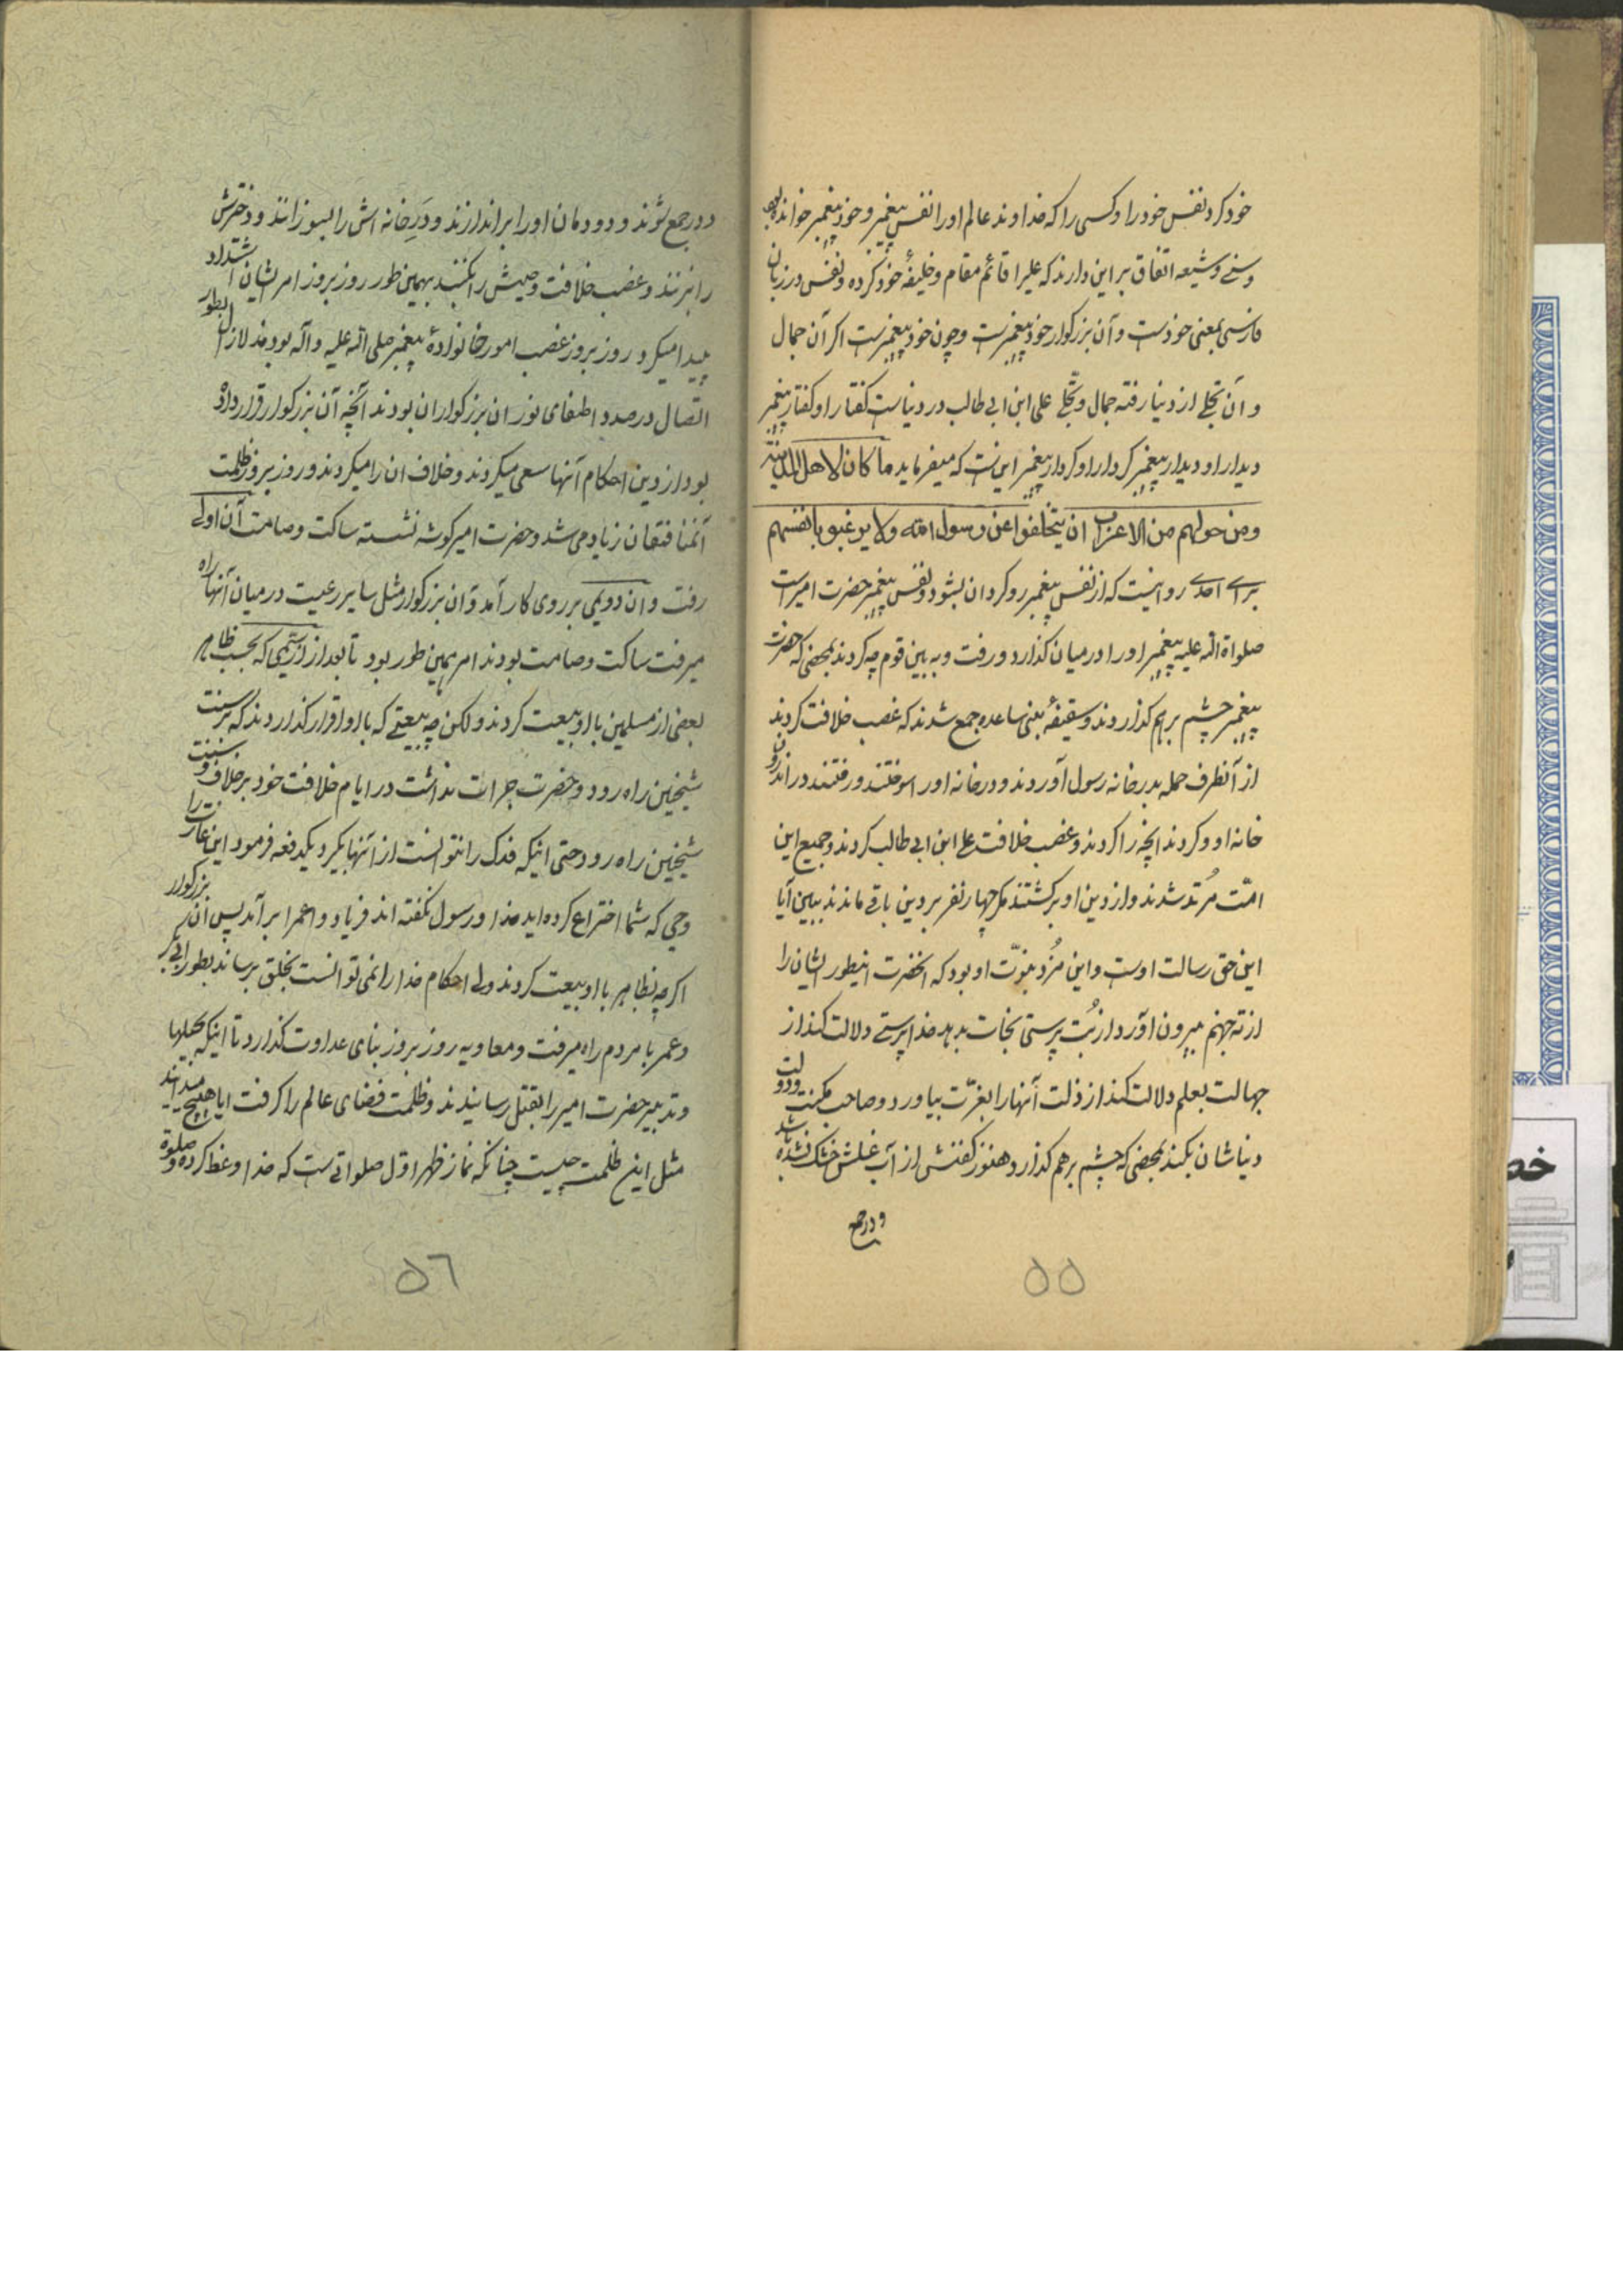 خود کرد نفس خود را و کسی را که خداوند عالم او را نفس پیغمبر و خود پیغمبر خوانده بود
و سنی و شیعه اتفاق بر این دارند که علیرا قائم مقام و خلیفهٔ خود کرده و نفس در زبان
فارسی بمعنی خودست و آن بزرکوار خود پیغمبرست و چون خود پیغمبرست اکر آن جمال
و آن تجلی از دنیا رفته جمال و تجلی علی ابن ابی طالب در دنیاست کفتار او کفتار پیغمبر
دیدار او دیدار پیغمبر کردار او کردار پیغمبر اینست که میفرماید ما کان لاهل المدینة
ومن حولهم من الاعراب ان یتخلفوا عن رسول الله ولا یرغبوا بانفسهم
برای احدی روا نیست که از نفس پیغمبر رو کردان بشود و نفس پیغمبر حضرت امیرست
صلواة الله علیه پیغمبر او را در میان کذارد و رفت و به بین قوم چه کردند بمحضی که حضرت
پیغمبر چشم بر هم کذاردند و سقیفهٔ بنی ساعده جمع شدند که غصب خلافت کردند
از آنطرف حمله بدر خانه رسول آوردند و در خانه او را سوختند و رفتند در اندرون
خانه او و کردند انچه را کردند و غصب خلافت علی ابن ابی طالب کردند و جمیع این
امّت مُرتد شدند و از دین او برکشتند مکر چهار نفر بر دین باقی ماندند ببین آیا
این حق رسالت اوست و این مُزد نبوّت او بود که انحضرت اینطور ایشان را
از ته جهنم بیرون اورد و از بُت پرستی نجات بدهد خدا پرستی دلالت کند از
جهالت بعلم دلالت کند از ذلت آنها را بعزّت بیاورد و صاحب مکنت و دولت
دنیاشان بکند بمحضی که چشم بر هم کذارد هنوز کفنش از آب غسلش خشک نشده باشد
و در جمع
۵۵
و در جمع شوند و دودمان او را براندازند و دَرِ خانه اش را بسوزانند و دخترش
را بزنند و غصب خلافت وصیش را بکنند بهمین طور روز بروز امر ایشان اشتداد
پیدا میکرد و روز بروز غصب امور خانوادهٔ پیغمبر صلی الله علیه و آله بودند لازال بطور
اتّصال در صدد اطفای نور ان بزرکواران بودند آنچه آن بزرکوار قرار داده
بود از دین احکام آنها سعی میکردند و خلاف ان را میکردند و روز بروز ظلمت
آنمنافقان زیاد می شد و حضرت امیر کوشه نشسته ساکت و صامت آن اولی
رفت و ان دویمی بر روی کار آمد و ان بزرکوار مثل سایر رعیت در میان آنها راه
میرفت ساکت و صامت بودند امر بهمین طور بود تا بعد از آن سیّمی که بحسب ظاهر
بعضی از مسلمین با او بیعت کردند و لکن چه بیعتی که با او قرار کذاردند که بر سنت
شیخین راه رود و حضرت جرات نداشت در ایام خلافت خود بر خلاف سنت
شیخین راه رود حتی اینکه فدک را نتوانست از آنها بکیرد یکدفعه فرمود این نماز را
که شما اختراع کرده اید خدا و رسول نکفته اند فریاد واعمرا بر آمد پس آن بزرکوار
اکر چه بظاهر با او بیعت کردند ولی احکام خدا را نمی توانست بخلق برساند بطور ابی بکر
و عمر با مردم راه میرفت و معاویه روز بروز بنای عداوت کذارد تا اینکه بحیله‌ها
و تدبیر حضرت امیر را بقتل رسانیدند و ظلمت فضای عالم را کرفت ایا هیچ میدانید
مثل این ظلمت چیست چنانکه نماز ظهر اوّل صلواتی ست که خدا وضع کرده و صلوة
۵٦